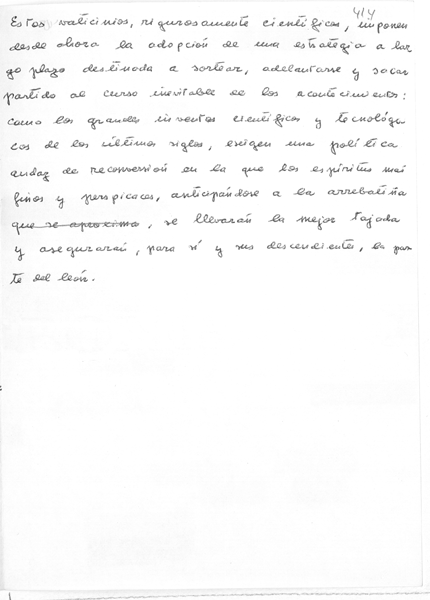 4/4
Estos vaticinios, rigurosamente científicos, imponen
desde ahora la adopción de una estrategia a lar
go plazo destinada a sortear, adelantarse y sacar
partido al curso inevitable de los acontecimientos:
como los grandes inventos científicos y tecnológi
cos de los últimos siglos, exigen una política
audaz de reconversión en la que los espíritus más
finos y perspicaces, anticipándose a la arrebatiña
que se aproxima, se llevarán la mejor tajada
y asegurarán, para sí y sus descendientes, la par
te del león.